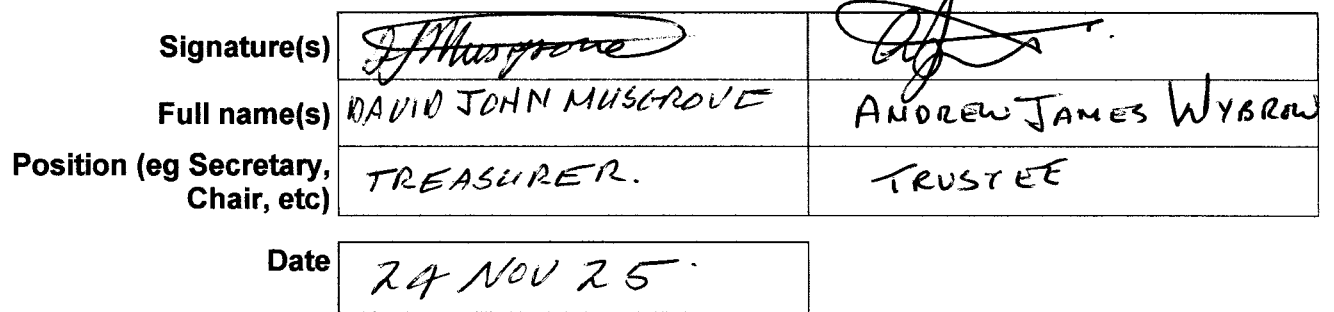 Signature(s) DJMusgrove
Full name(s) DAVID JOHN MUSGROVE ANDREW JAMES WYBROW
Position (eg Secretary, TREASURER. TRUSTEE
Chair, etc)
Date 24 NOV 25.